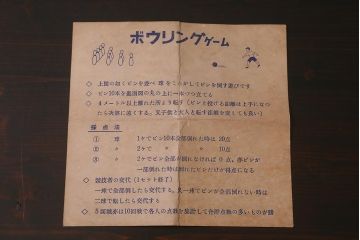 ボウリングゲーム
◇ 上図の如くピンを並べ球をころがしてピンを倒す遊びです
◇ ピン10本を盤面図の丸の上に一本づつ立てる
◇ 4メートル以上離れた所より転す(ピンと投げる距離は上手になつ
たら次第に遠くする。又子供と大人と転す距離を変しても良い)
採点法
① 1球 1ケでピン10本全部倒れた時は 20点
② 〃 2ケで 〃 〃 10点
③ 〃 2ケでピン全部が倒れなければ 0点。尚ピンが
一部倒れた時は倒れたピンだけが得点になる
◇ 競技者の交代(1セット終了)
一球で全部倒したら交代する。又一球でピンが全部倒れない時は
二球で転したら交代する
◇ 5回戦亦は10回戦で各人の点数を集計して合計点数の多いものが勝